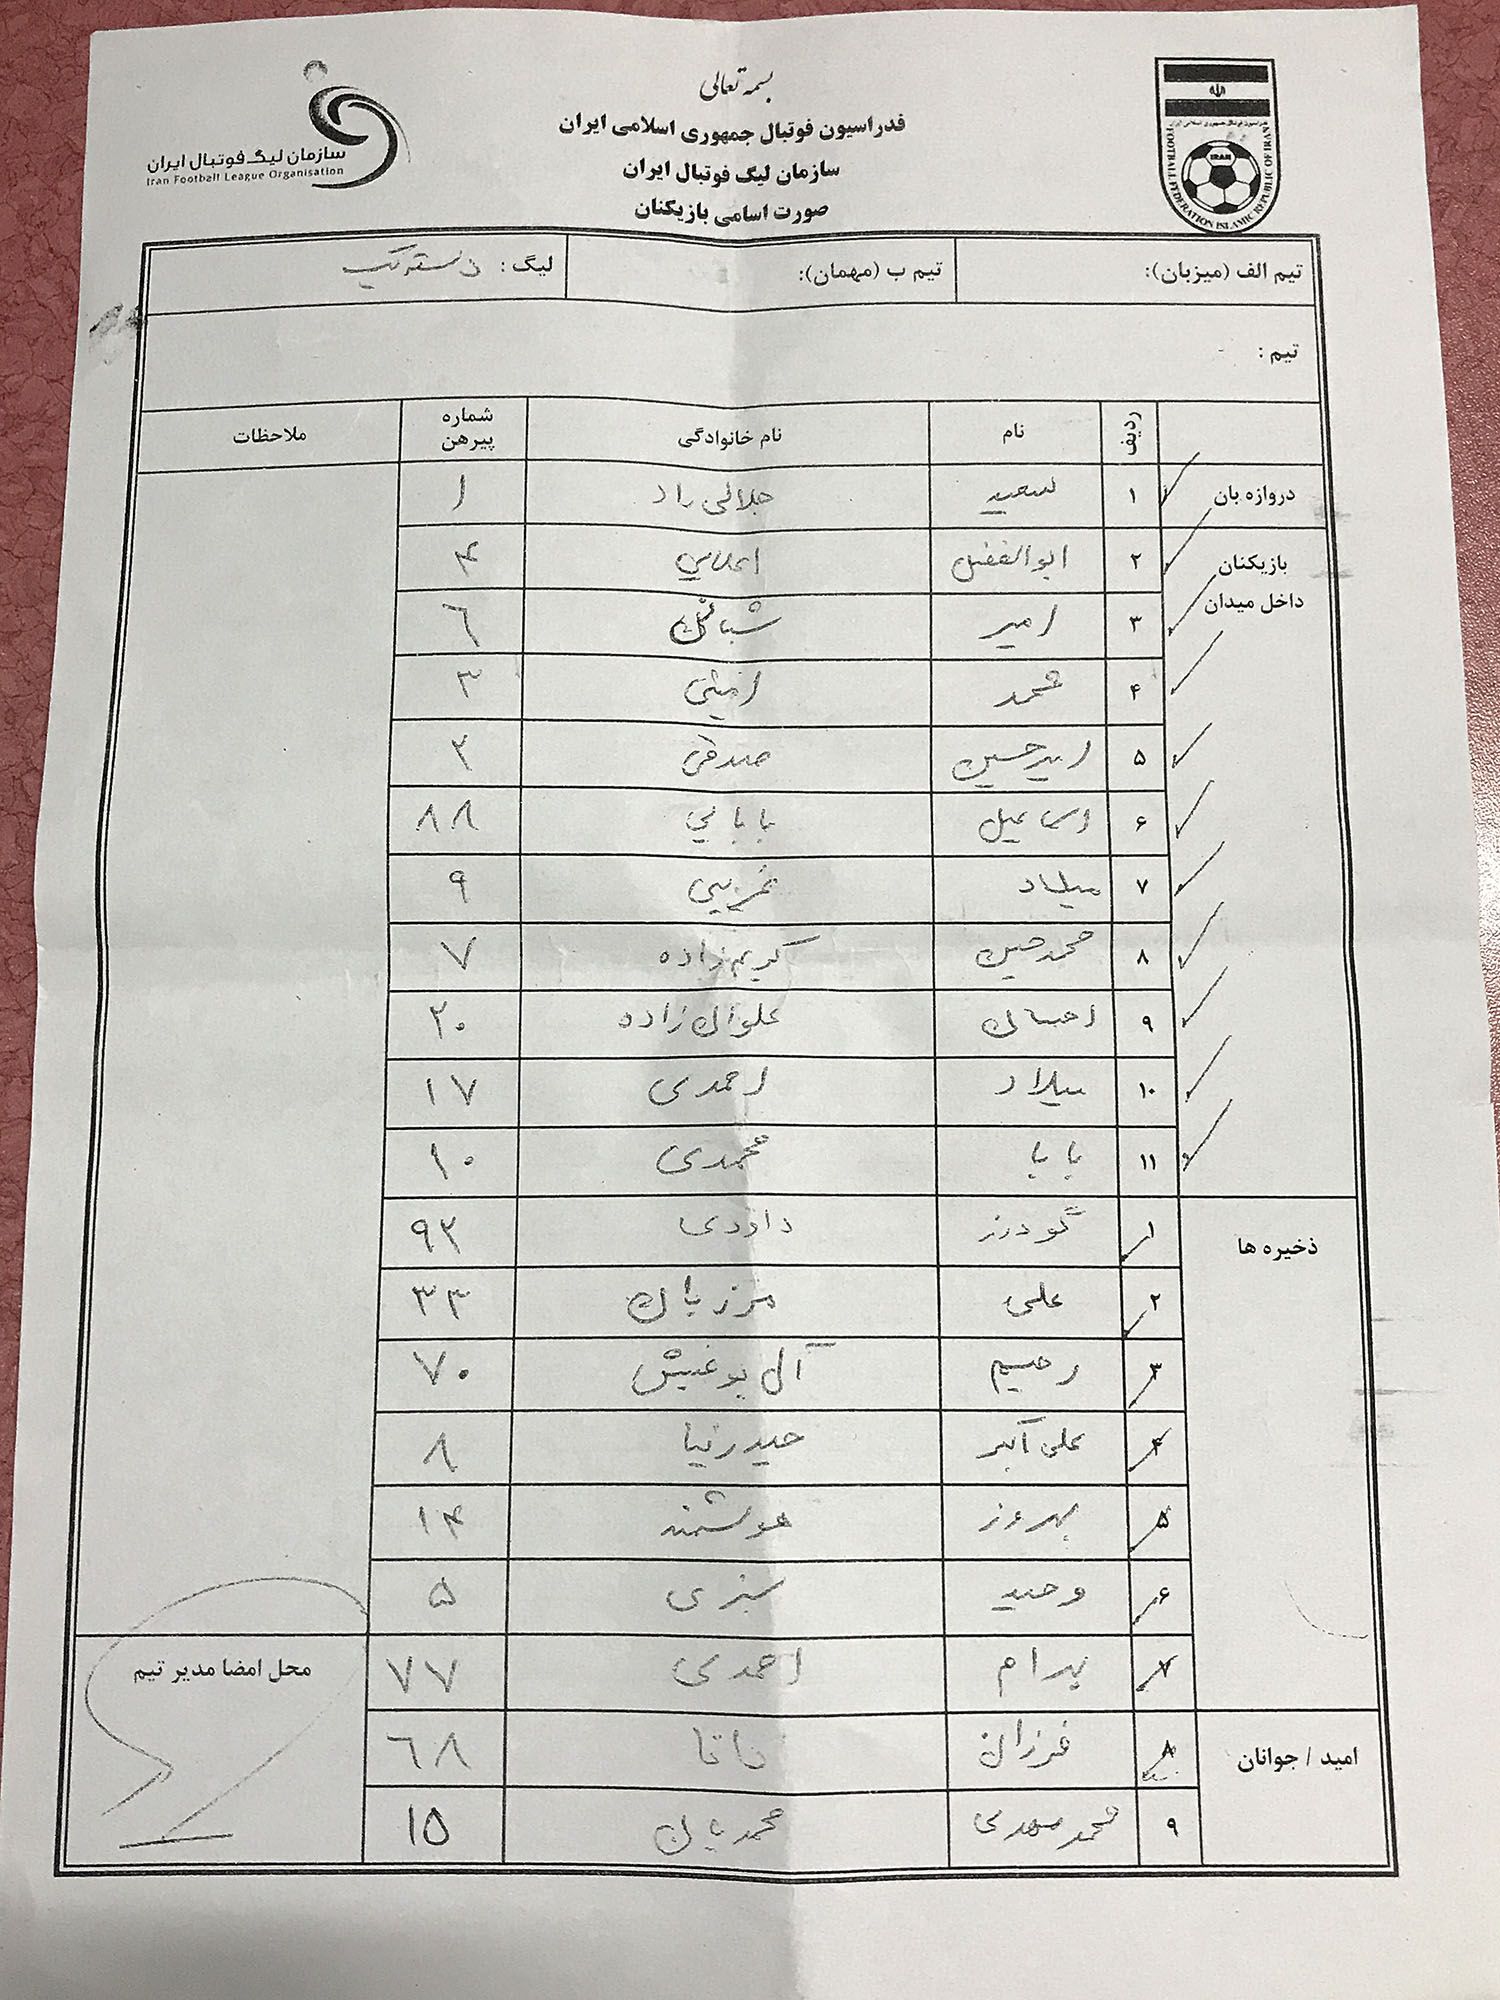 بسمه تعالی
فدراسیون فوتبال جمهوری اسلامی ایران
سازمان لیگ فوتبال ایران
صورت اسامی بازیکنان
سازمان لیگ فوتبال ایران
Iran Football League Organisation
فدراسیون فوتبال جمهوری اسلامی ایران
IRAN
FOOTBALL FEDERATION ISLAMIC REPUBLIC OF IRAN
تیم الف (میزبان): تیم ب (مهمان): لیگ :
تیم :
ردیف نام نام خانوادگی شماره پیرهن ملاحظات
دروازه بان ۱ سعید جلالی راد ۱
بازیکنان داخل میدان
۲ ابوالفضل ۴
۳ امیر ۶
۴ محمد امینی ۳
۵ امیرحسین صدقی ۲
۶ اسماعیل بابائی ۸۸
۷ میلاد غریبی ۹
۸ محمدحسین کریم زاده ۷
۹ احسان علوان زاده ۲۰
۱۰ میلاد احمدی ۱۷
۱۱ محمدی ۱۰
ذخیره ها
۱ گودرز داودی ۹۲
۲ علی مرزبان ۳۳
۳ رحیم آل بوغبیش ۷۰
۴ علی اکبر حیدرنیا ۸
۵ بهروز هوشمند ۱۴
۶ وحید سبزی ۵
۷ پدرام احمدی ۷۷
امید / جوانان
۸ فرزان ۶۸
۹ محمدمهدی ۱۵
محل امضا مدیر تیم